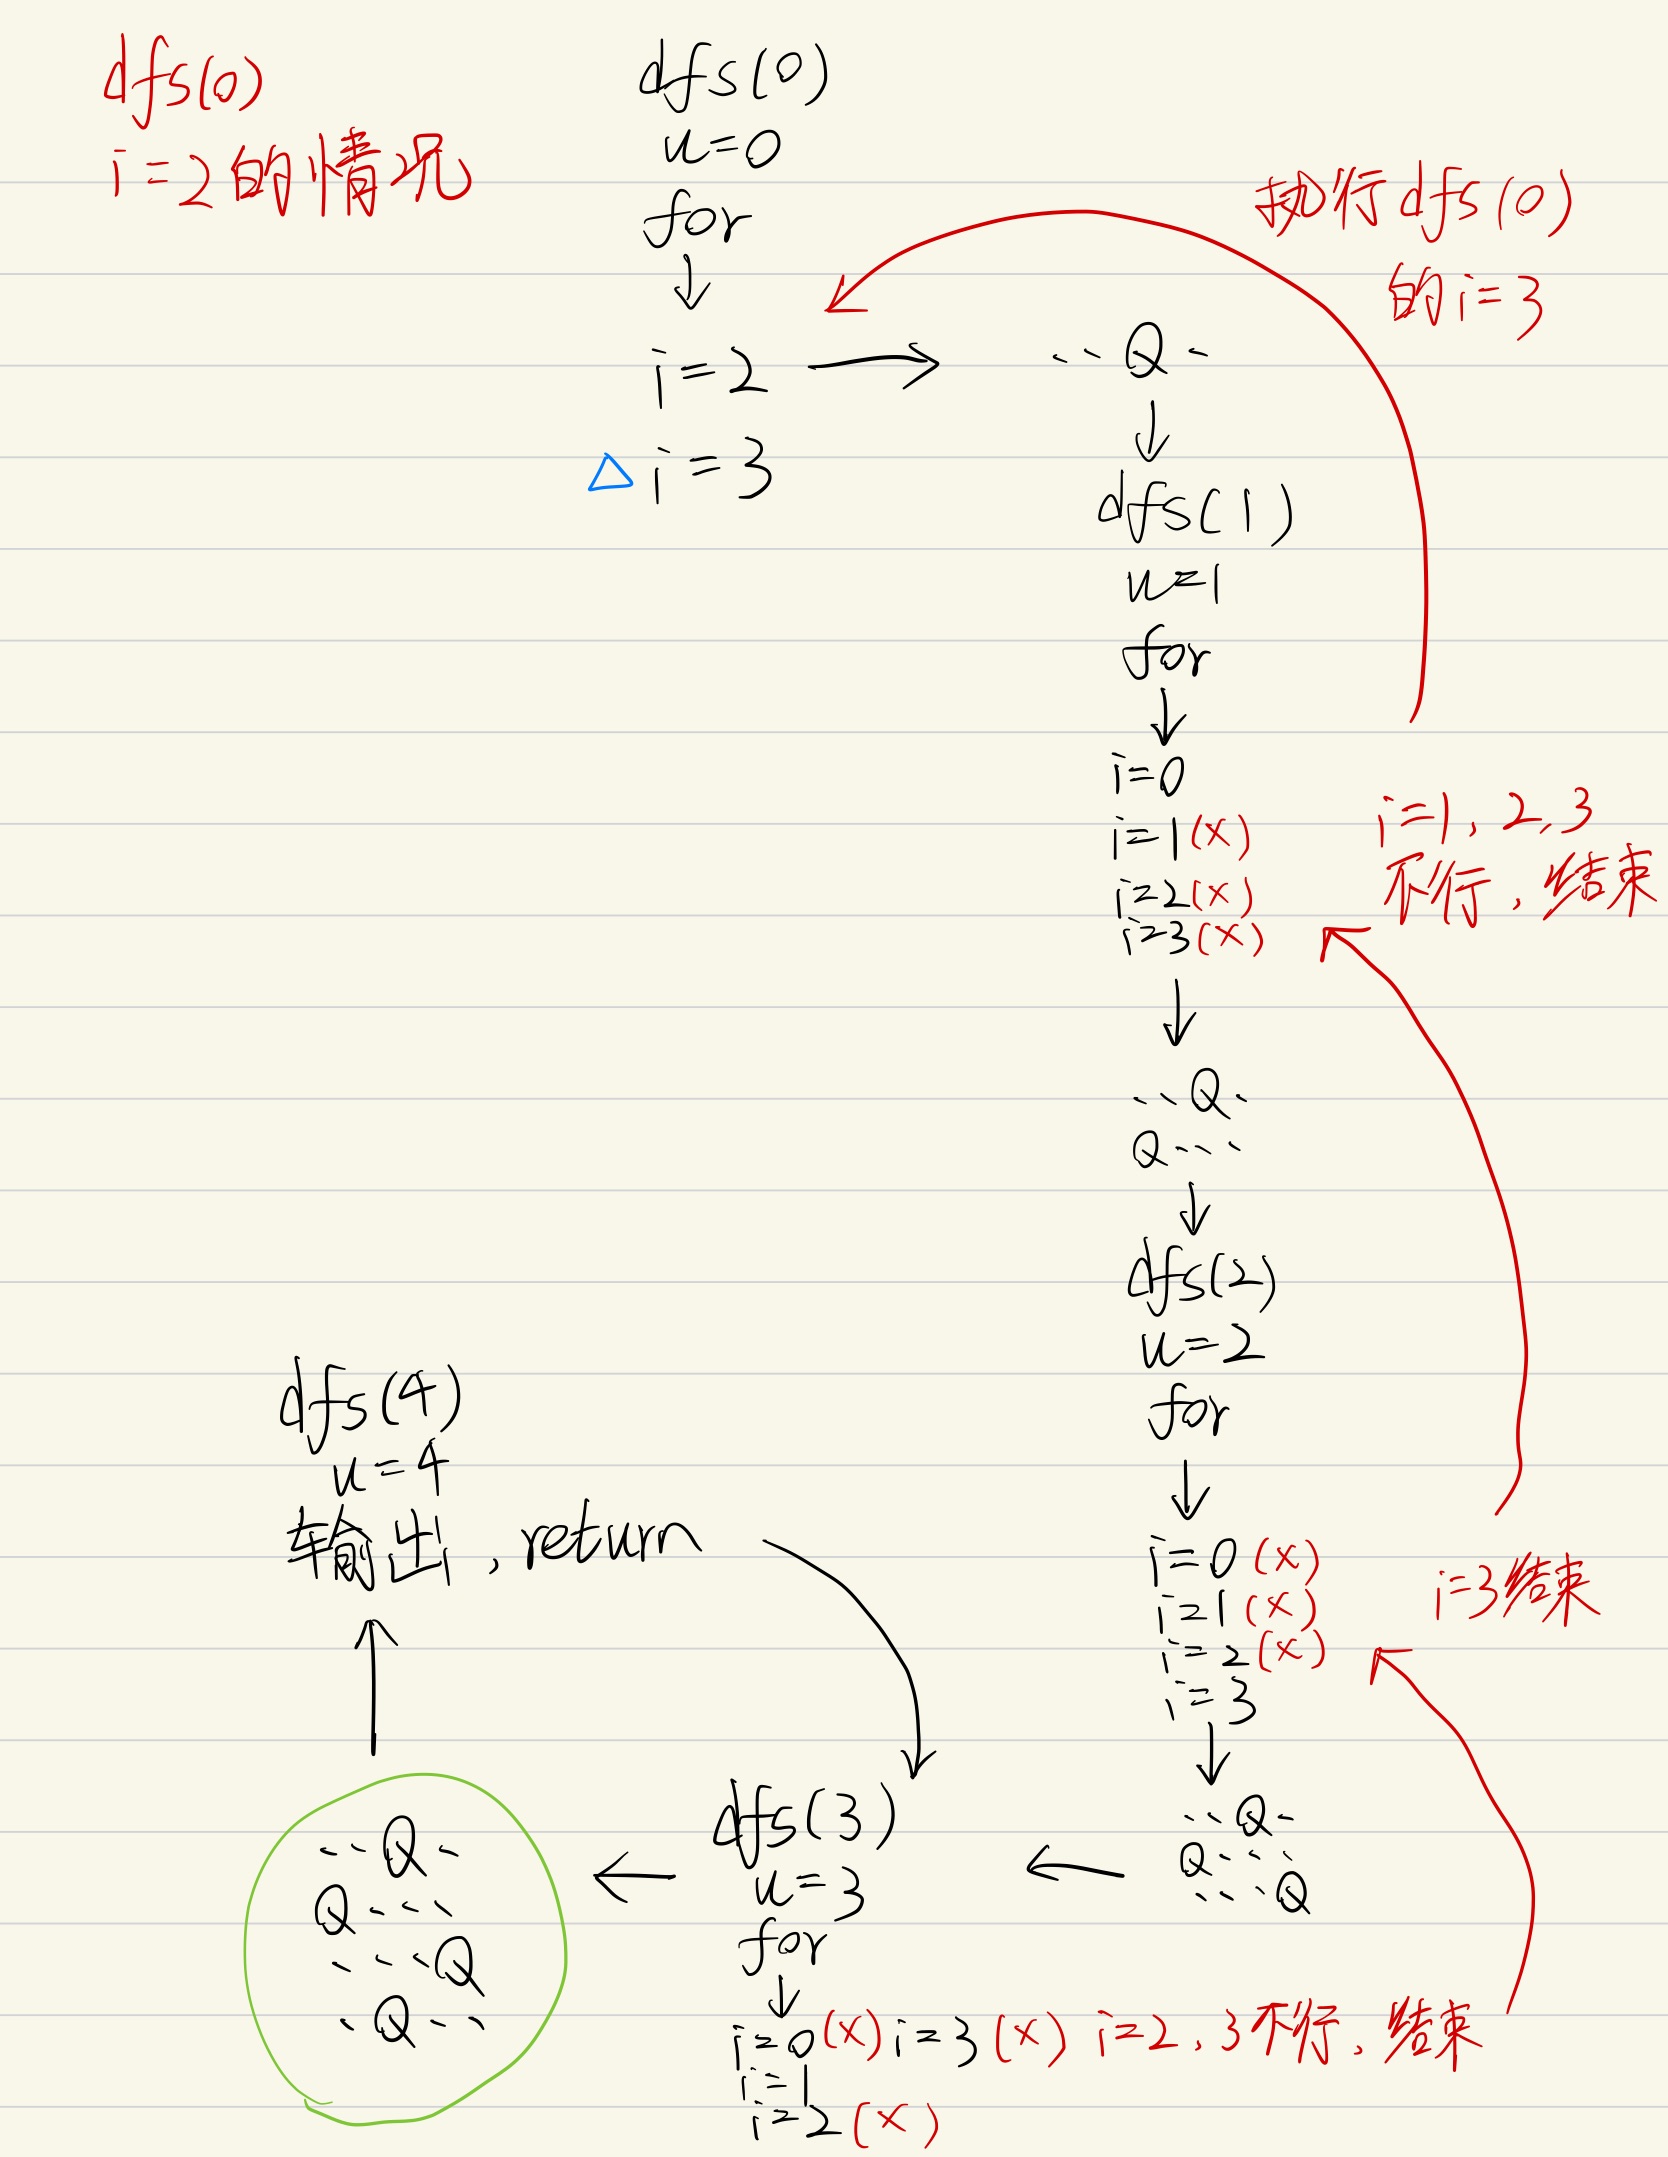 dfs(0)
i=2的情况
dfs(0)
u=0
for
i=2
△ i=3
执行dfs(0)
的i=3
..Q.
dfs(1)
u=1
for
i=0
i=1(x)
i=2(x)
i=3(x)
i=1,2,3
不行,结束
..Q.
Q...
dfs(2)
u=2
for
i=0(x)
i=1(x)
i=2(x)
i=3
i=3结束
..Q.
Q...
...Q
dfs(3)
u=3
for
i=0(x) i=3(x) i=2,3不行,结束
i=1
i=2(x)
..Q.
Q...
...Q
.Q..
dfs(4)
u=4
输出,return